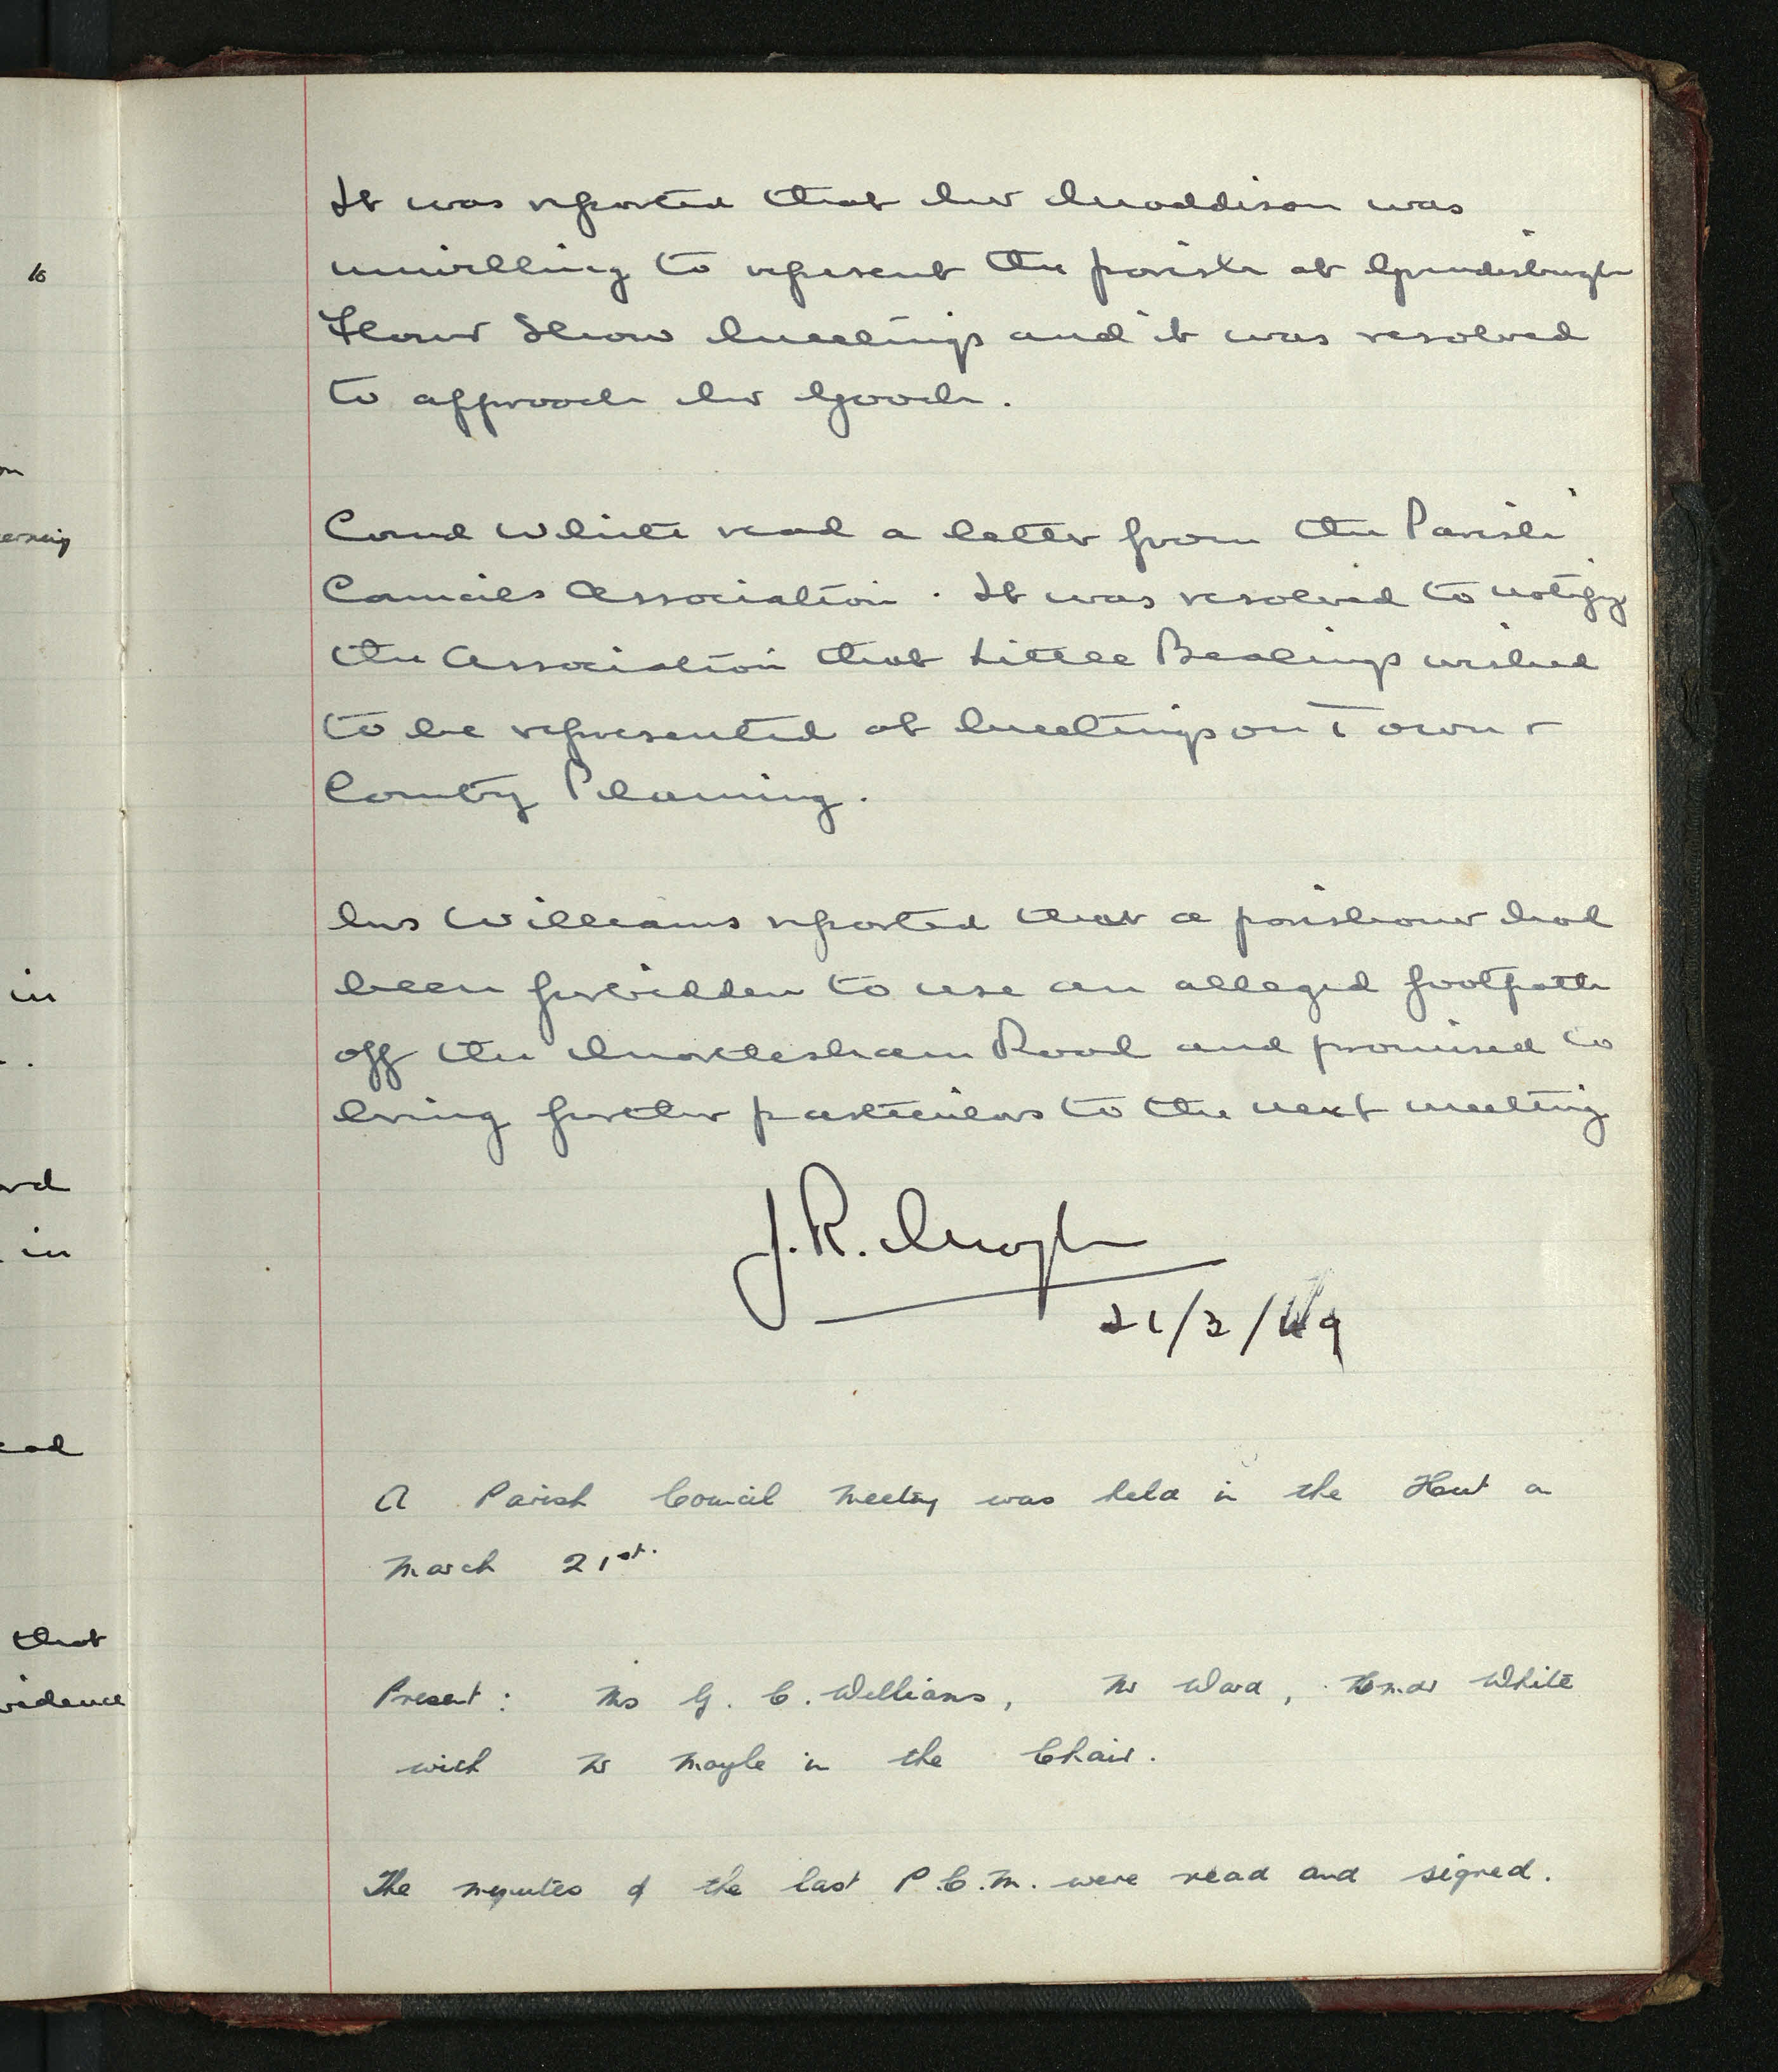 It was reported that Mr Maddison was
unwilling to represent the parish at Grundisburgh
Flower Show Meetings and it was resolved
to approach Mr Gooch.
Comd White read a letter from the Parish
Councils Association. It was resolved to notify
the Association that Little Bealings wished
to be represented at Meetings on Town &
County Planning.
Mrs Williams reported that a parishioner had
been forbidden to use an alleged footpath
off the Martlesham Road and promised to
bring further particulars to the next meeting
J. R. Mayle
21/3/49
A Parish Council Meeting was held in the Hut on
March 21st.
Present: Mrs G. C. Williams, Mr Ward, White
with Mr Mayle in the Chair.
The minutes of the last P.C.M. were read and signed.
in
in
that